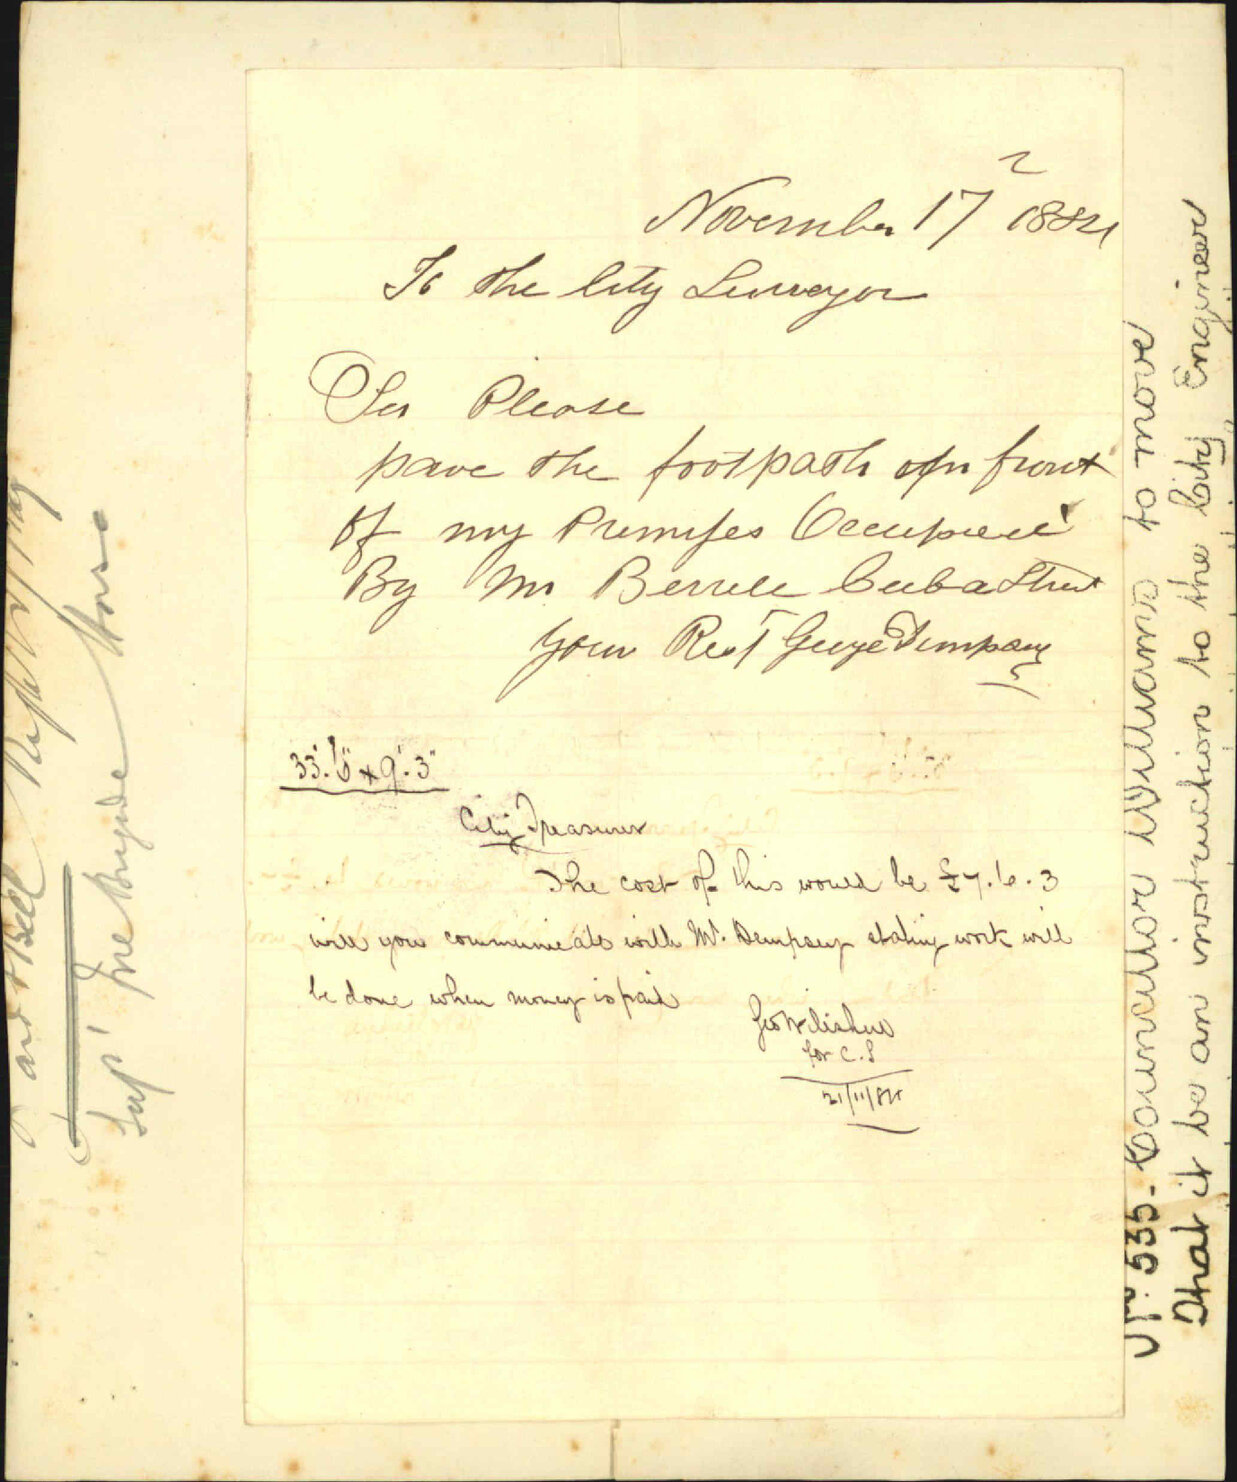 November 17 1884
To the City Surveyor
Sir Please
pave the footpath in front
of my Premises Occupied
By Mr Berrell Cuba Street
your Rest George Dempsey
33'. 6" x 9'. 3"
City Treasurer
The cost of this would be £7. 6. 3
will you communicate with Mr. Dempsey stating work will
be done when money is paid
for C. S
21/11/84
No. 535. Councillor Williams to move
That it be an instruction to the City Engineer
and Bell